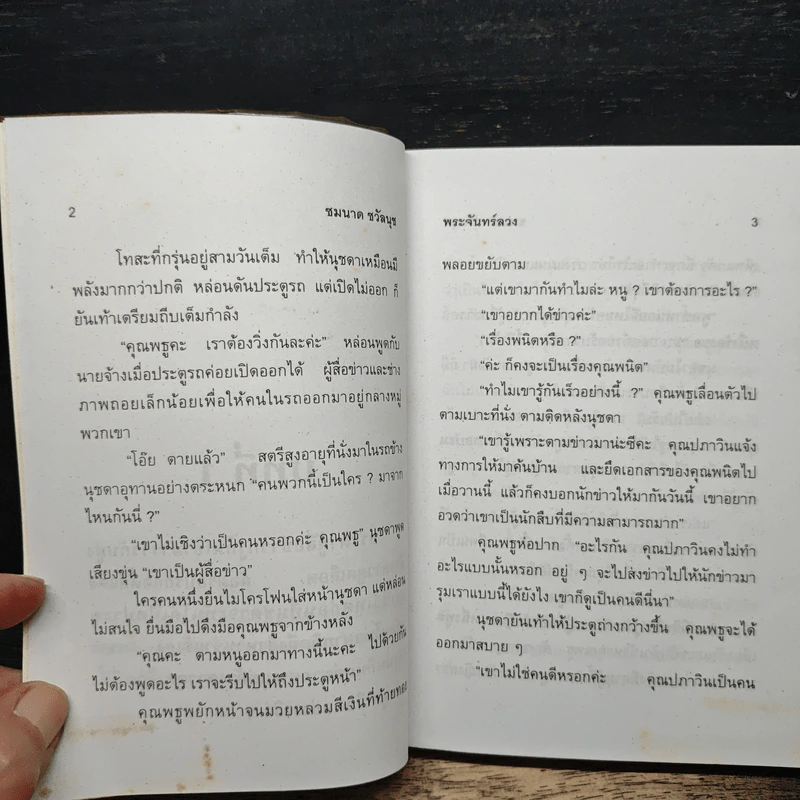 2
ชมนาด ชวัลนุช
โทสะที่กรุ่นอยู่สามวันเต็ม ทำให้นุชดาเหมือนมี
พลังมากกว่าปกติ หล่อนดันประตูรถ แต่เปิดไม่ออก ก็
ยันเท้าเตรียมถีบเต็มกำลัง
“คุณพธูคะ เราต้องวิ่งกันละค่ะ” หล่อนพูดกับ
นายจ้างเมื่อประตูรถค่อยเปิดออกได้ ผู้สื่อข่าวและช่าง
ภาพถอยเล็กน้อยเพื่อให้คนในรถออกมาอยู่กลางหมู่
พวกเขา
“โอ๊ย ตายแล้ว” สตรีสูงอายุที่นั่งมาในรถข้าง
นุชดาอุทานอย่างตระหนก “คนพวกนี้เป็นใคร ? มาจาก
ไหนกันนี่ ?”
“เขาไม่เชิงว่าเป็นคนหรอกค่ะ คุณพธู” นุชดาพูด
เสียงขุ่น “เขาเป็นผู้สื่อข่าว”
ใครคนหนึ่งยื่นไมโครโฟนใส่หน้านุชดา แต่หล่อน
ไม่สนใจ ยื่นมือไปดึงมือคุณพธูจากข้างหลัง
“คุณคะ ตามหนูออกมาทางนี้นะคะ ไปด้วยกัน
ไม่ต้องพูดอะไร เราจะรีบไปให้ถึงประตูหน้า”
คุณพธูพยักหน้าจนมวยหลวมสีเงินที่ท้ายทอย
พระจันทร์ลวง
3
พลอยขยับตาม
“แต่เขามากันทำไมล่ะ หนู ? เขาต้องการอะไร ?”
“เขาอยากได้ข่าวค่ะ”
“เรื่องพนิตหรือ ?”
“ค่ะ ก็คงจะเป็นเรื่องคุณพนิต”
“ทำไมเขารู้กันเร็วอย่างนี้ ?” คุณพธูเลื่อนตัวไป
ตามเบาะที่นั่ง ตามติดหลังนุชดา
“เขารู้เพราะตามข่าวมาน่ะซีคะ คุณปภาวินแจ้ง
ทางการให้มาค้นบ้าน และยึดเอกสารของคุณพนิตไป
เมื่อวานนี้ แล้วก็คงบอกนักข่าวให้มากันวันนี้ เขาอยาก
อวดว่าเขาเป็นนักสืบที่มีความสามารถมาก”
คุณพธูห่อปาก “อะไรกัน คุณปภาวินคงไม่ทำ
อะไรแบบนั้นหรอก อยู่ ๆ จะไปส่งข่าวไปให้นักข่าวมา
รุมเราแบบนี้ได้ยังไง เขาก็ดูเป็นคนดีนี่นา”
นุชดายันเท้าให้ประตูถ่างกว้างขึ้น คุณพธูจะได้
ออกมาสบาย ๆ
“เขาไม่ใช่คนดีหรอกค่ะ คุณปภาวินเป็นคน